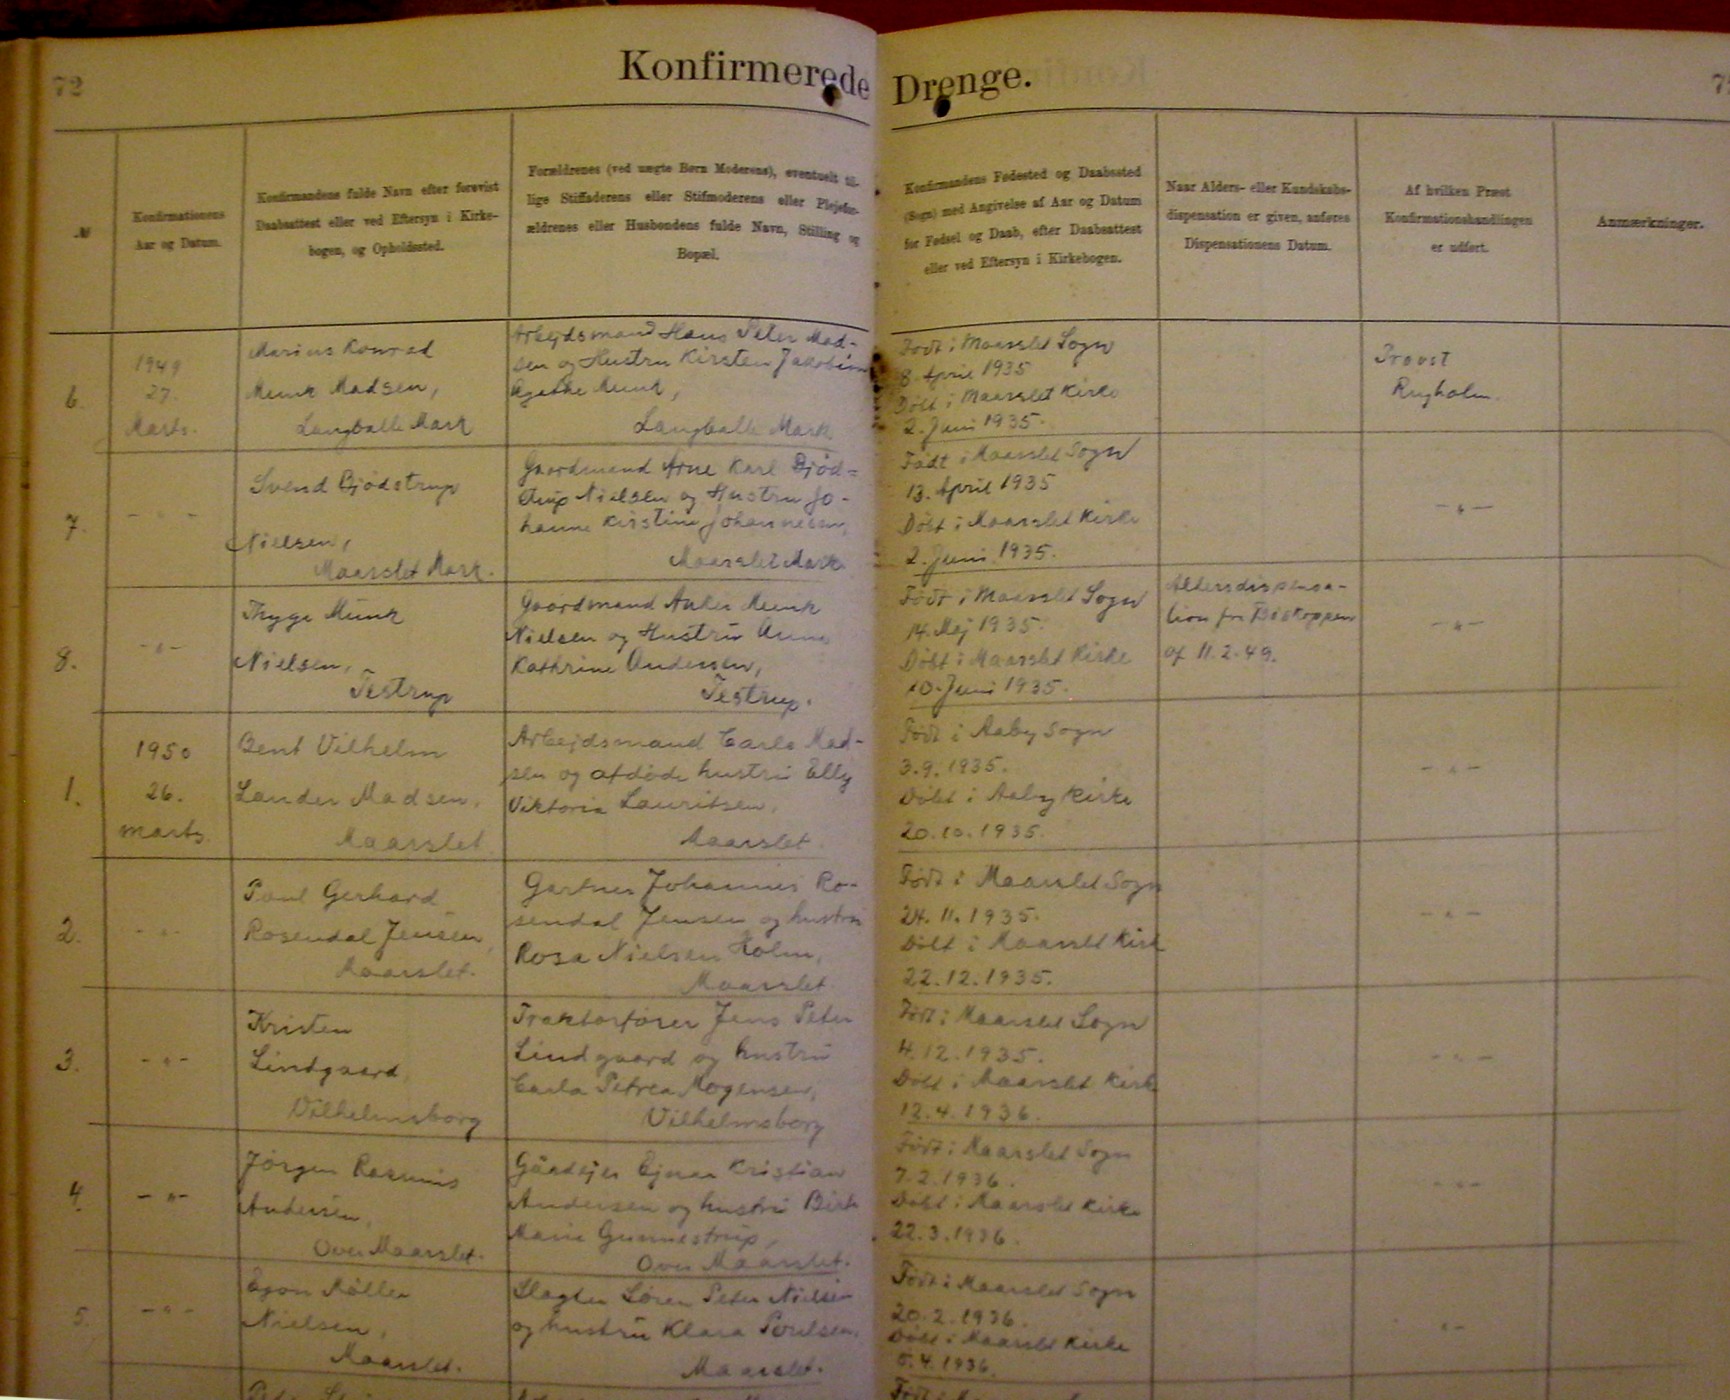 72
Konfirmerede
Drenge.
№
Konfirmationens
Aar og Datum.
Konfirmandens fulde Navn efter forevist
Daabsattest eller ved Eftersyn i Kirke-
bogen, og Opholdssted.
Forældrenes (ved uægte Børn Moderens), eventuelt til-
lige Stiffaderens eller Stifmoderens eller Plejefor-
ældrenes eller Husbondens fulde Navn, Stilling og
Bopæl.
Konfirmandens Fødested og Daabssted
(Sogn) med Angivelse af Aar og Datum
for Fødsel og Daab, efter Daabsattest
eller ved Eftersyn i Kirkebogen.
Naar Alders- eller Kundskabs-
dispensation er given, anføres
Dispensationens Datum.
Af hvilken Præst
Konfirmationshandlingen
er udført.
Anmærkninger.
6.
1949
27.
Marts.
Marius Konrad
Munk Madsen,
Langballe Mark
Arbejdsmand Hans Peter Mad-
sen og Hustru Kirsten Jakobine
Agethe Munk,
Langballe Mark
Født i Maarslet Sogn
8. April 1935
Døbt i Maarslet Kirke
2. Juni 1935.
Provst
Rugholm.
7.
- " -
Svend Bjødstrup
Nielsen,
Maarslet Mark.
Gaardmand Arne Karl Bjød=
strup Nielsen og Hustru Jo-
hanne Kirstine Johannesen,
Maarslet Mark
Født i Maarslet Sogn
13. April 1935
Døbt i Maarslet Kirke
2. Juni 1935.
- " -
8.
- " -
Thyge Munk
Nielsen,
Testrup
Gaardmand Anker Munk
Nielsen og Hustru Anna
Kathrine Andersen,
Testrup.
Født i Maarslet Sogn
14. Mej 1935.
Døbt i Maarslet Kirke
10. Juni 1935.
Aldersdispensa-
tion fra Biskoppen
af 11.2.49.
- " -
1.
1950
26.
marts
Bent Vilhelm
Lander Madsen,
Maarslet.
Arbejdsmand Carlo Mad-
sen og afdøde hustru Elly
Viktoria Lauritsen,
Maarslet
Født i Aaby Sogn
3.9.1935.
Døbt i Aaby Kirke
20.10.1935.
- " -
2.
- " -
Poul Gerhard
Rosendal Jensen,
Maarslet.
Gartner Johannes Ro-
sendal Jensen og hustru
Rosa Nielsen Holm,
Maarslet
Født i Maarslet Sogn
24.11.1935.
Døbt i Maarslet Kirk
22.12.1935.
- " -
3.
- " -
Kristen
Lindgaard,
Vilhelmsborg
Traktorfører Jens Peter
Lindgaard og hustru
Carla Petrea Mogensen,
Vilhelmsborg
Født i Maarslet Sogn
4.12.1935.
Døbt i Maarslet Kirke
12.4.1936.
- " -
4.
- " -
Jørgen Rasmus
Andersen,
Over Maarslet.
Gårdejer Ejnar Kristian
Andersen og hustru
Marie Gunnestrup,
Over Maarslet.
Født i Maarslet Sogn
7.2.1936.
Døbt i Maarslet Kirke
22.3.1936.
- " -
5.
- " -
Egon Møller
Nielsen,
Maarslet.
Slagter Søren Peter Nielsen
og hustru Klara Poulsen,
Maarslet.
Født i Maarslet Sogn
20.2.1936.
Døbt i Maarslet Kirke
5.4.1936.
" -